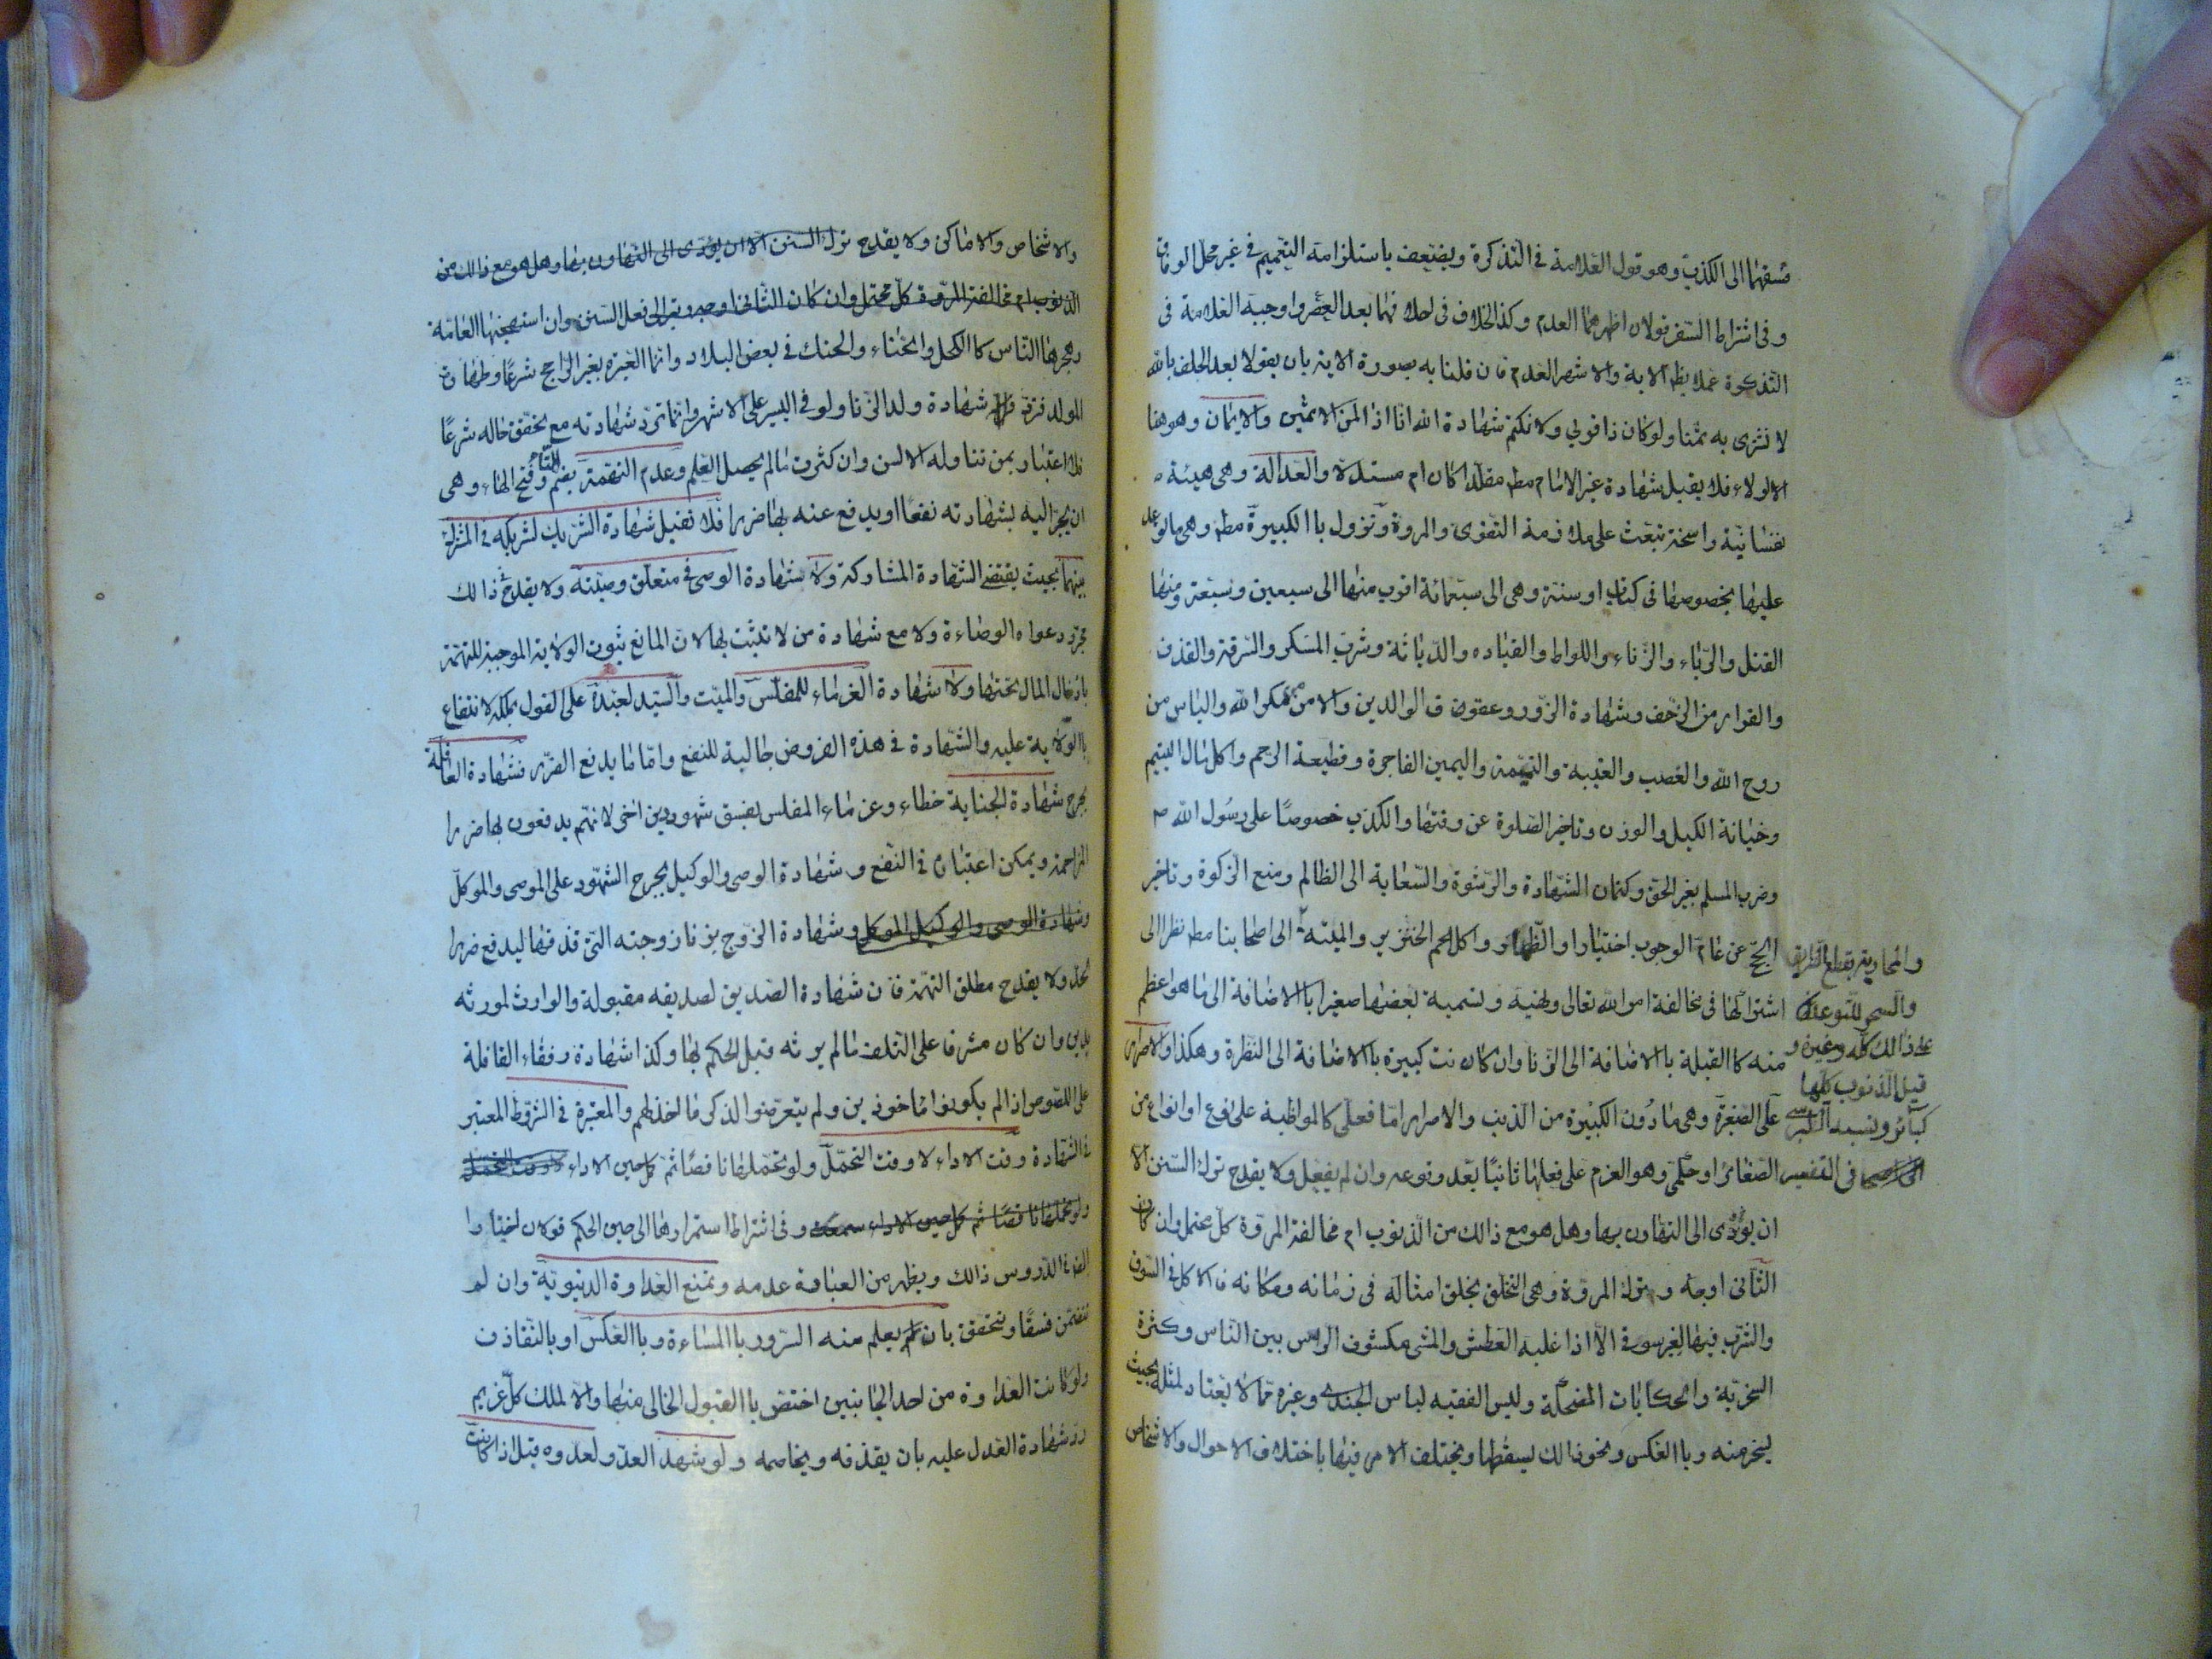 فسقهما الى الكذب وهو قول العلامة في التذكرة ويضعف باستلزامه التعميم في غير محل الوفاق
وفي اشتراط السفر قولان اظهرهما العدم وكذا الخلاف في احلافهما بعد العصر واوجبه العلامة في
التذكرة عملا بظ الاية والاشهر العدم فان قلنا به بصورة الاية بان يقولا بعد الحلف بالله
لا نشترى به ثمنا ولو كان ذا قربي ولا نكتم شهادة الله انا اذا لمن الاثمين والايمان وهو هنا
الولاء فلا يقبل شهادة غير الامامي مط مقلدا كان ام مستدلا والعدالة وهي هيئة
نفسانية راسخة تبعث على ملازمة التقوى والمروة وتزول باالكبيرة مط وهي ما توعد
عليها بخصوصها في كتاب او سنة وهي الى سبعمائة اقرب منها الى سبعين وسبعة ومنها
القتل والرباء والزناء واللواط والقياده والدياثة وشرب المسكر والسرقة والقذف
والفرار من الزحف وشهادة الزور وعقوق الوالدين والامن من مكر الله والياس من
روح الله والغصب والغيبة والنميمة واليمين الفاجرة وقطيعة الرحم واكل مال اليتيم
وخيانة الكيل والوزن وتاخير الصلوة عن وقتها والكذب خصوصا على رسول الله ص
وضرب المسلم بغير الحق وكتمان الشهادة والرشوة والسعاية الى الظالم ومنع الزكوة وتاخير
الحج عن عام الوجوب اختيارا والظهار واكل لحم الخنزير والميتة الى اصحابنا مط نظرا الى
اشتراكها في مخالفة امر الله تعالى ونهيه وتسمية بعضها صغيرا باالاضافة الى ما هو اعظم
منه كاالقبلة باالاضافة الى الزنا وان كانت كبيرة باالاضافة الى النظرة وهكذا والاصرار
على الصغيرة وهي ما دون الكبيرة من الذنب والاصرار اما فعلي كالمواظبة على نوع او انواع من
الصغائر او حكمي وهو العزم على فعلها ثانيا بعد وقوعه وان لم يفعل ولا يقدح ترك السنن الا
ان يؤدى الى التهاون بها وهل هو مع ذالك من الذنوب ام مخالفة المروة كل محتمل وان كان
الثاني اوجه وبترك المروة وهي التخلق بخلق امثاله في زمانه ومكانه فالاكل في السوق
والشرب فيها لغير سوقي الا اذا غلبه العطش والمشي مكشوف الراس بين الناس وكثرة
السخرية والحكايات المضحكة ولبس الفقيه لباس الجندي وغيره مما لا يعتاد لمثله بحيث
يسخر منه وباالعكس ونحو ذالك يسقطها ويختلف الامر فيها باختلاف الاحوال والاشخاص
والمحاربة بقطع الطريق
والسحر للتوعد
على ذالك كله وغيره و
قيل الذنوب كلها
كبائر ونسبه الطبرسي
في التفسير
والاشخاص والاماكن ولا يقدح ترك السنن الا ان يؤدى الى التهاون بها وهل هو مع ذالك من
الذنوب ام مخالفة المروة كل محتمل وان كان الثاني اوجه وبترك الى فعل السنن وان استهجنها العامة
وهجرها الناس كاالكحل والحناء والحنك في بعض البلاد وانما العبرة بغير الراجح شرعا وطهارة
المولد فترد شهادة ولد الزنا ولو في اليسير على الاشهر وانما ترد شهادته مع تحقق حاله شرعا
فلا اعتبار بمن تناوله الالسن وان كثرت مالم يحصل العلم وعدم التهمة بضم التاء وفتح الهاء وهي
ان يجر اليه بشهادته نفعا او يدفع عنه بها ضررا فلا تقبل شهادة الشريك لشريكه في المشترك
بينهما بحيث يقتضي الشهادة المشاركة ولا شهادة الوصي في متعلق وصيته ولا يقدح في ذالك
مجرد دعواه الوصاءة ولا مع شهادة من لا تثبت بها لان المانع ثبوت الولاية الموجبة للتهمة
بادخال المال تحتها ولا شهادة الغرماء للمفلس والميت والسيد لعبده على القول بملكه لانتفاع
باالولاية عليه والشهادة في هذه الفروض جالبة للنفع واما ما يدفع الضرر فشهادة العاقلة
بجرح شهادة الجناية خطاء وغرماء المفلس بفسق شهود دين اخر لانهم يدفعون بها ضررا
المزاحمة ويمكن اعتباره في النفع وشهادة الوصي والوكيل بجرح الشهود على الموصى والموكل
وشهادة الوصي والوكيل الموكل وشهادة الزوج بزنا زوجته التي قذفها ليدفع ضرر
الحد ولا يقدح مطلق التهمة فان شهادة الصديق لصديقه مقبولة والوارث لمورثه
بدين وان كان مشرفا على التلف مالم يرثه قبل الحكم بها وكذا شهادة رفقاء القافلة
على اللصوص اذا لم يكونوا ماخوذين ولم يتعرضوا لذكر ما اخذ لهم والمعتبرة في الشروط المعتبر
في الشهادة وقت الاداء لا وقت التحمل ولو تحملها ناقصا ثم كمل حين الاداء لا وقت التحمل
ولو تحملها ناقصا ثم كمل حين الاداء سمعت وفي اشتراط استمرارها الى حين الحكم قولان اختيار
الدروس ذالك ويظهر من العبارة عدمه وتمنع العداوة الدنيوية وان لم
تتضمن فسقا وتتحقق بان يعلم منه السرور باالمساءة وباالعكس او باالتقاذف
ولو كانت العداوة من احد الجانبين اختص باالقبول الخالي منها والا لملك كل غريم
رد شهادة العدل عليه بان يقذفه ويخاصمه ولو شهد العدو لعدوه قبل اذا كانت